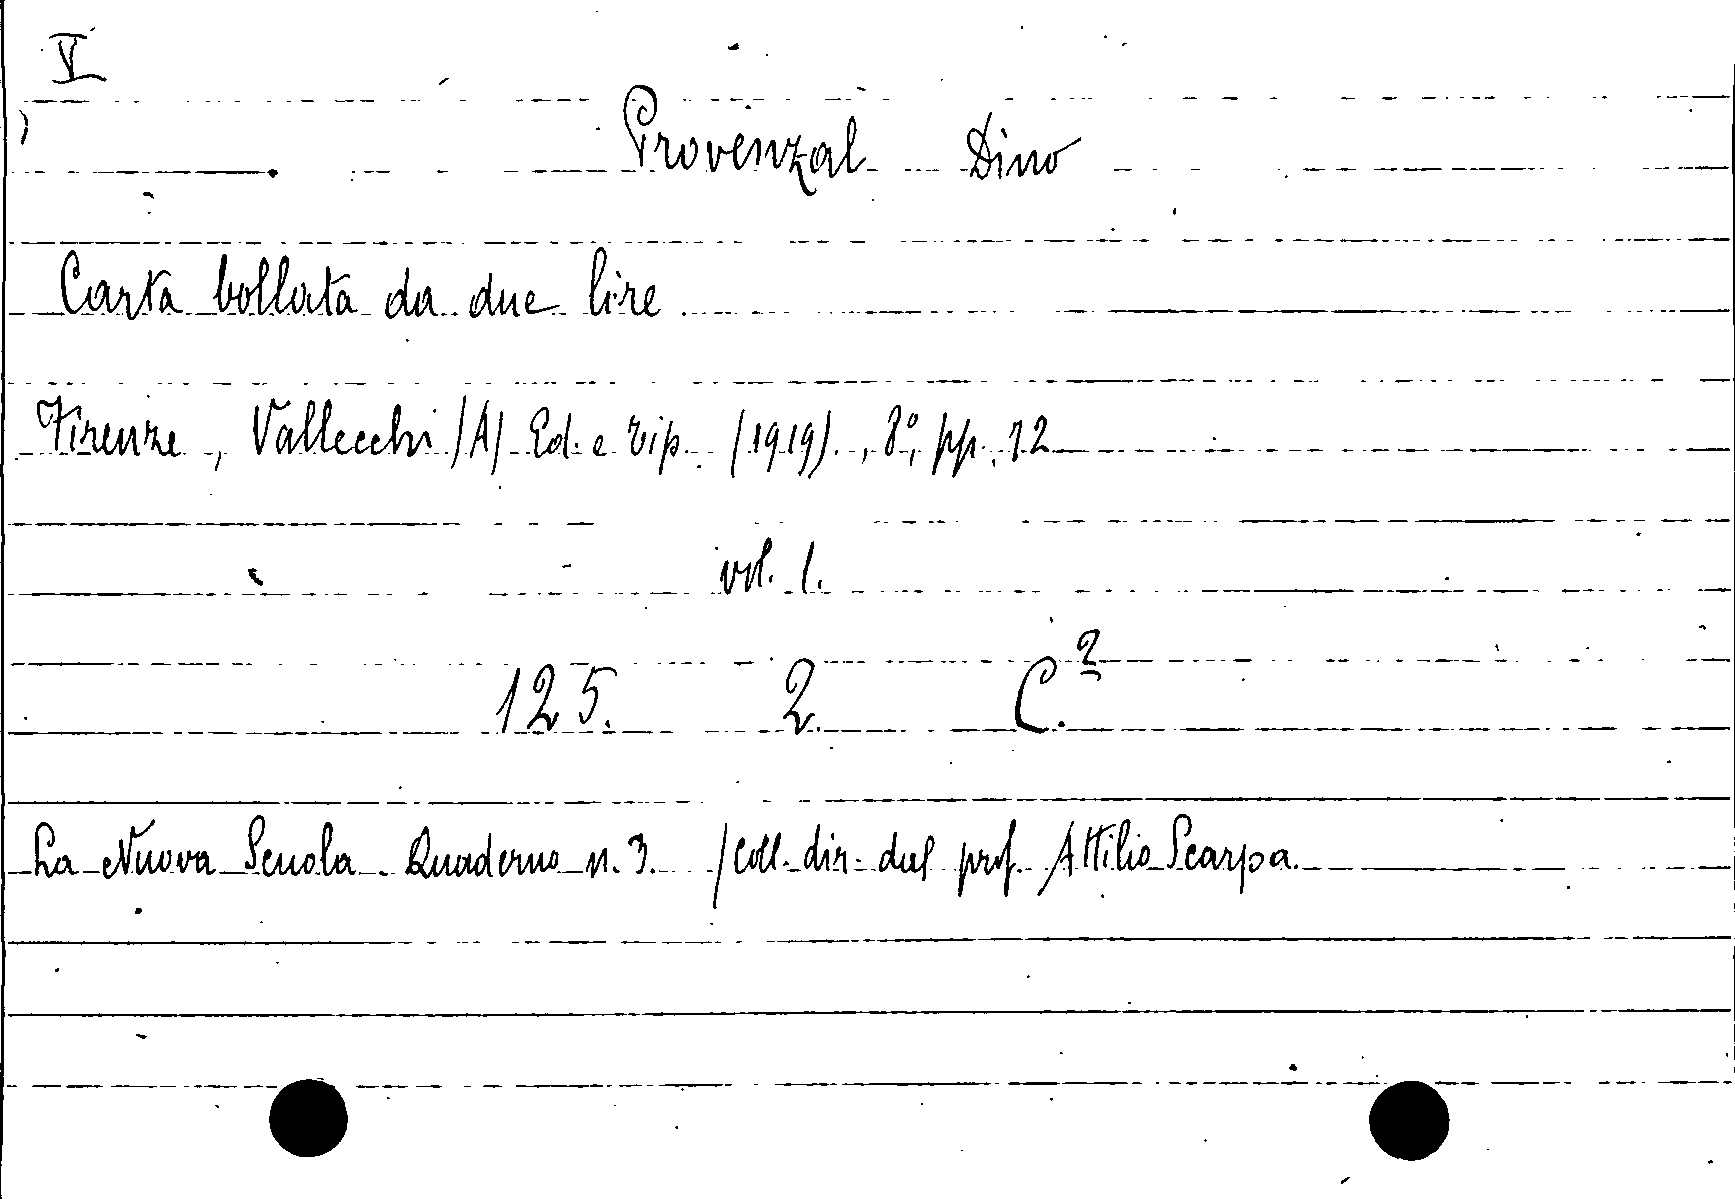 V
Provenzal Dino
Carta bollata da due lire
Firenze, Vallecchi (A) Ed. e tip. (1919)., 8°, pp. 72
vol. 1.
125. 2. C.²
La Nuova Scuola. Quaderno n. 3. (Coll. dir. dal prof. Attilio Scarpa.